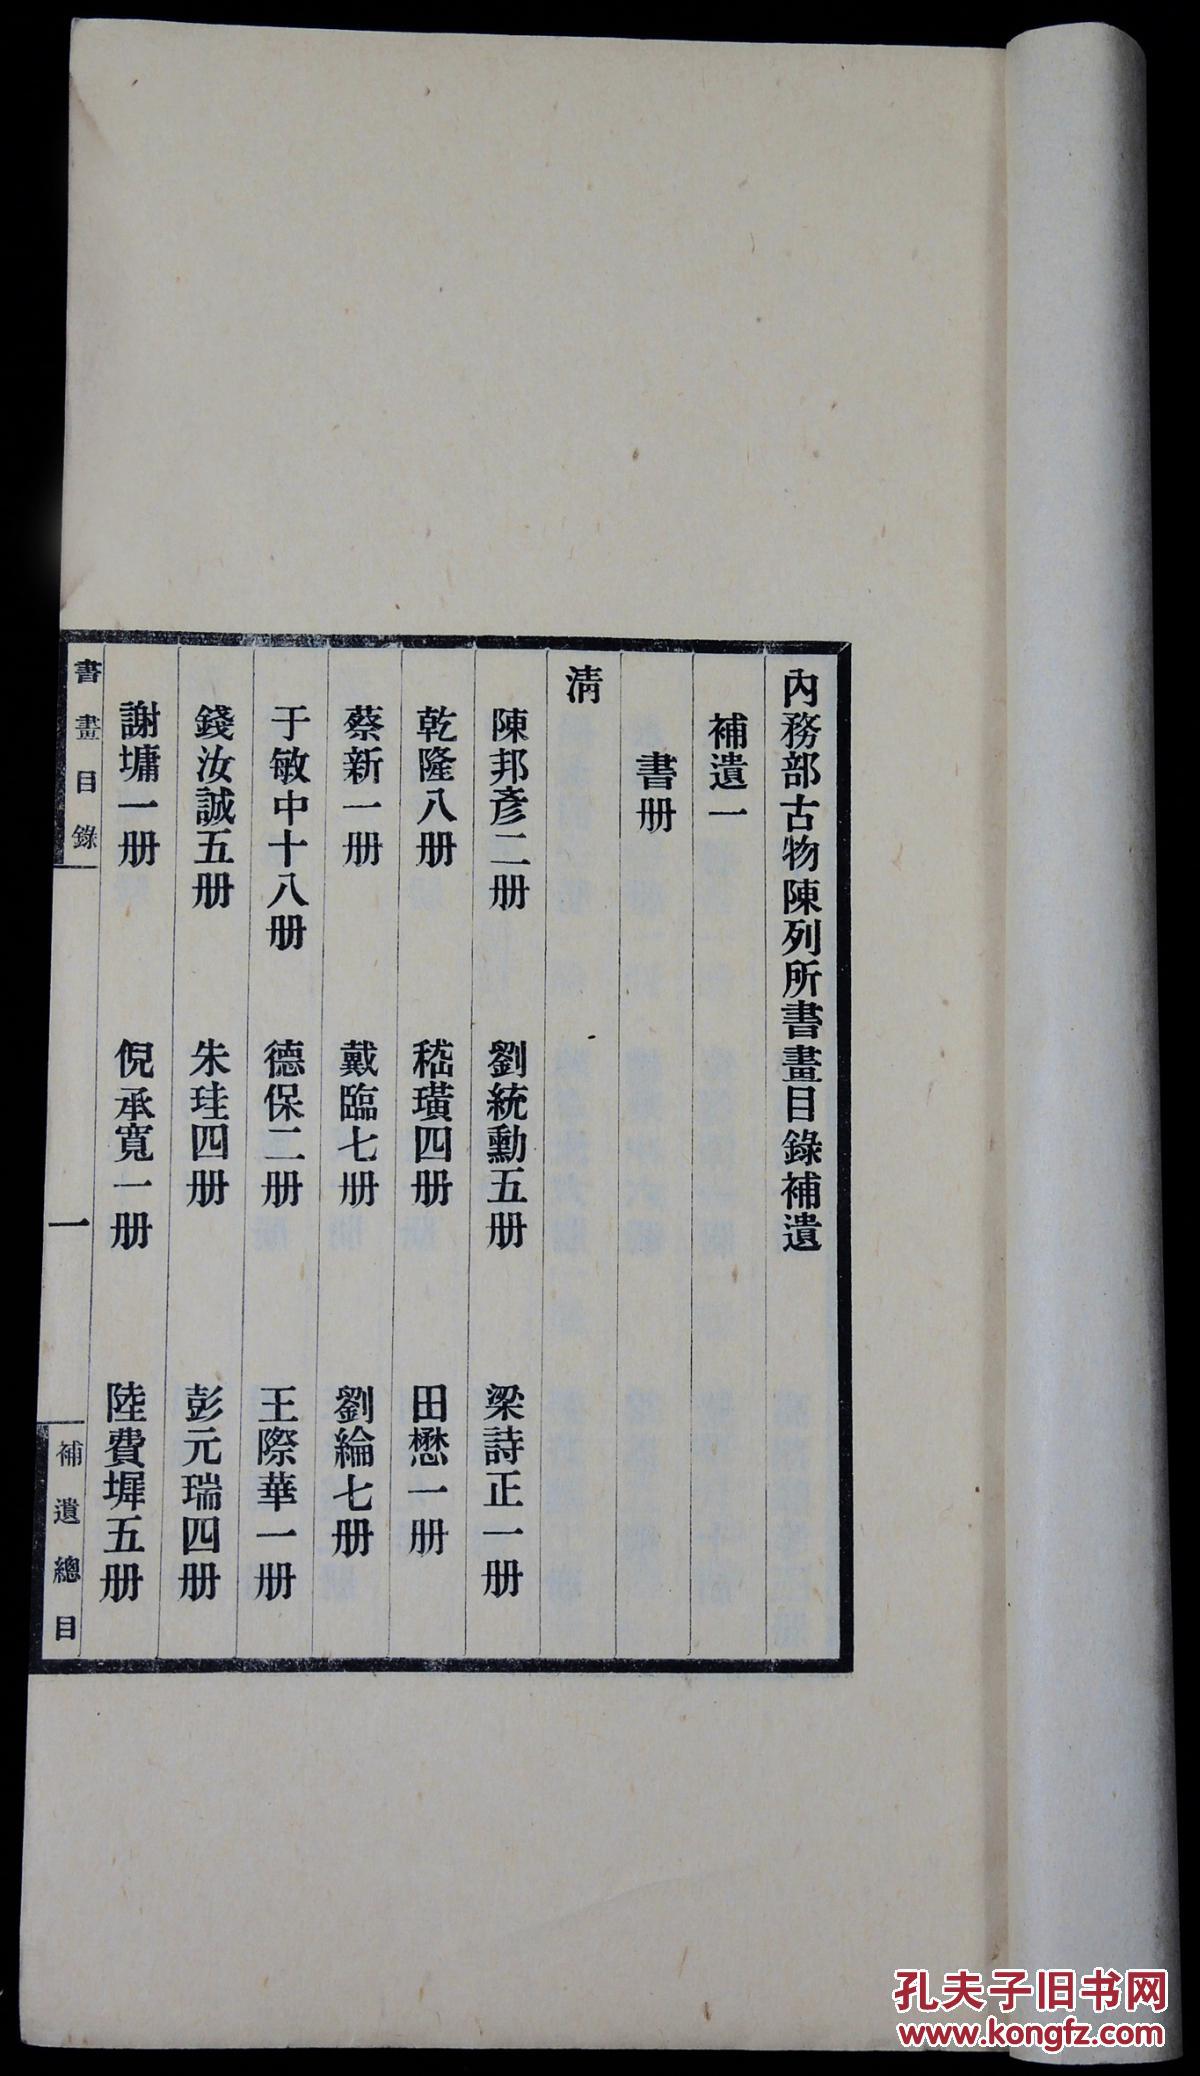 內務部古物陳列所書畫目錄補遺
補遺一
書册
清
陳邦彥二册　劉統勳五册　梁詩正一册
乾隆八册　嵇璜四册　田懋一册
蔡新一册　戴臨七册　劉綸七册
于敏中十八册　德保二册　王際華一册
錢汝誠五册　朱珪四册　彭元瑞四册
謝墉一册　倪承寬一册　陸費墀五册
書畫目錄　一　補遺總目
孔夫子旧书网
www.kongfz.com